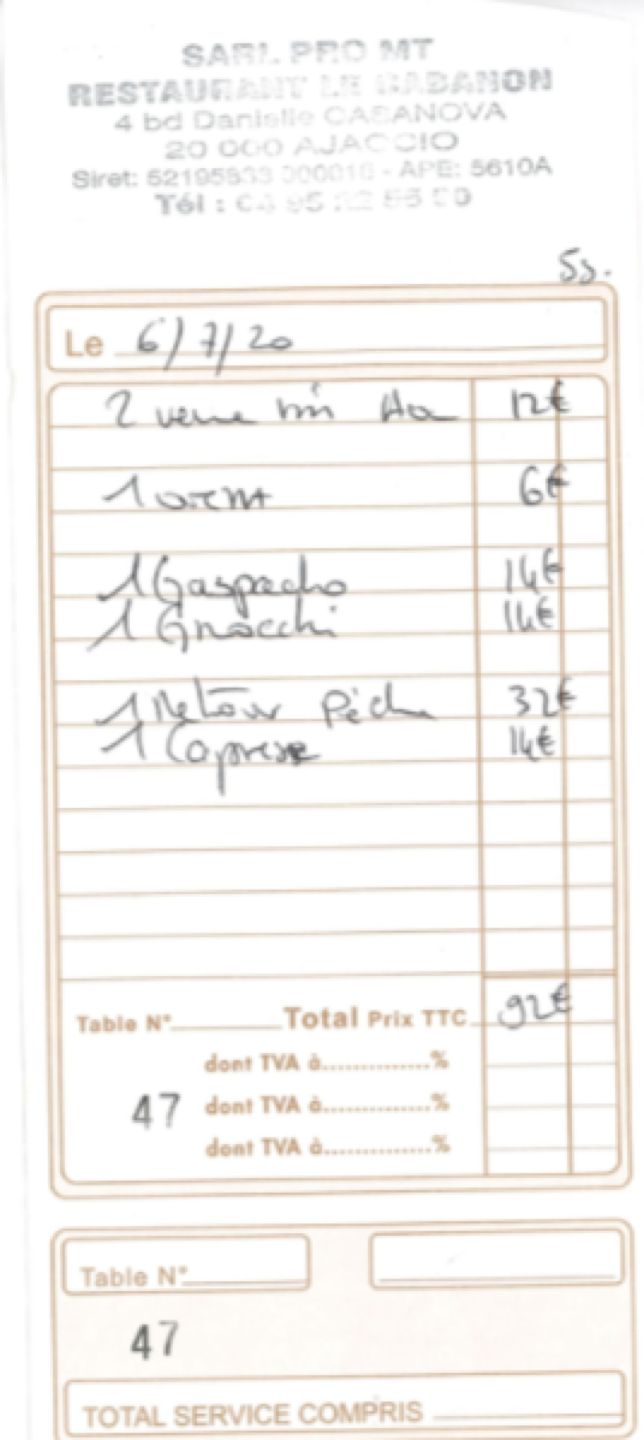 SARL PRO MT
RESTAURANT LE CABANON
4 bd Danielle CASANOVA
20 000 AJACCIO
Siret: - APE: 5610A
Tél : 04 95 22 55 90
Le 6/7/20
2 verre vin 12€
1 6€
1 Gaspacho 14€
1 Gnocchi 14€
1 Retour Pêche 32€
1 Caprese 14€
Table N° Total Prix TTC 92€
dont TVA à..............%
47 dont TVA à..............%
dont TVA à..............%
Table N°
47
TOTAL SERVICE COMPRIS